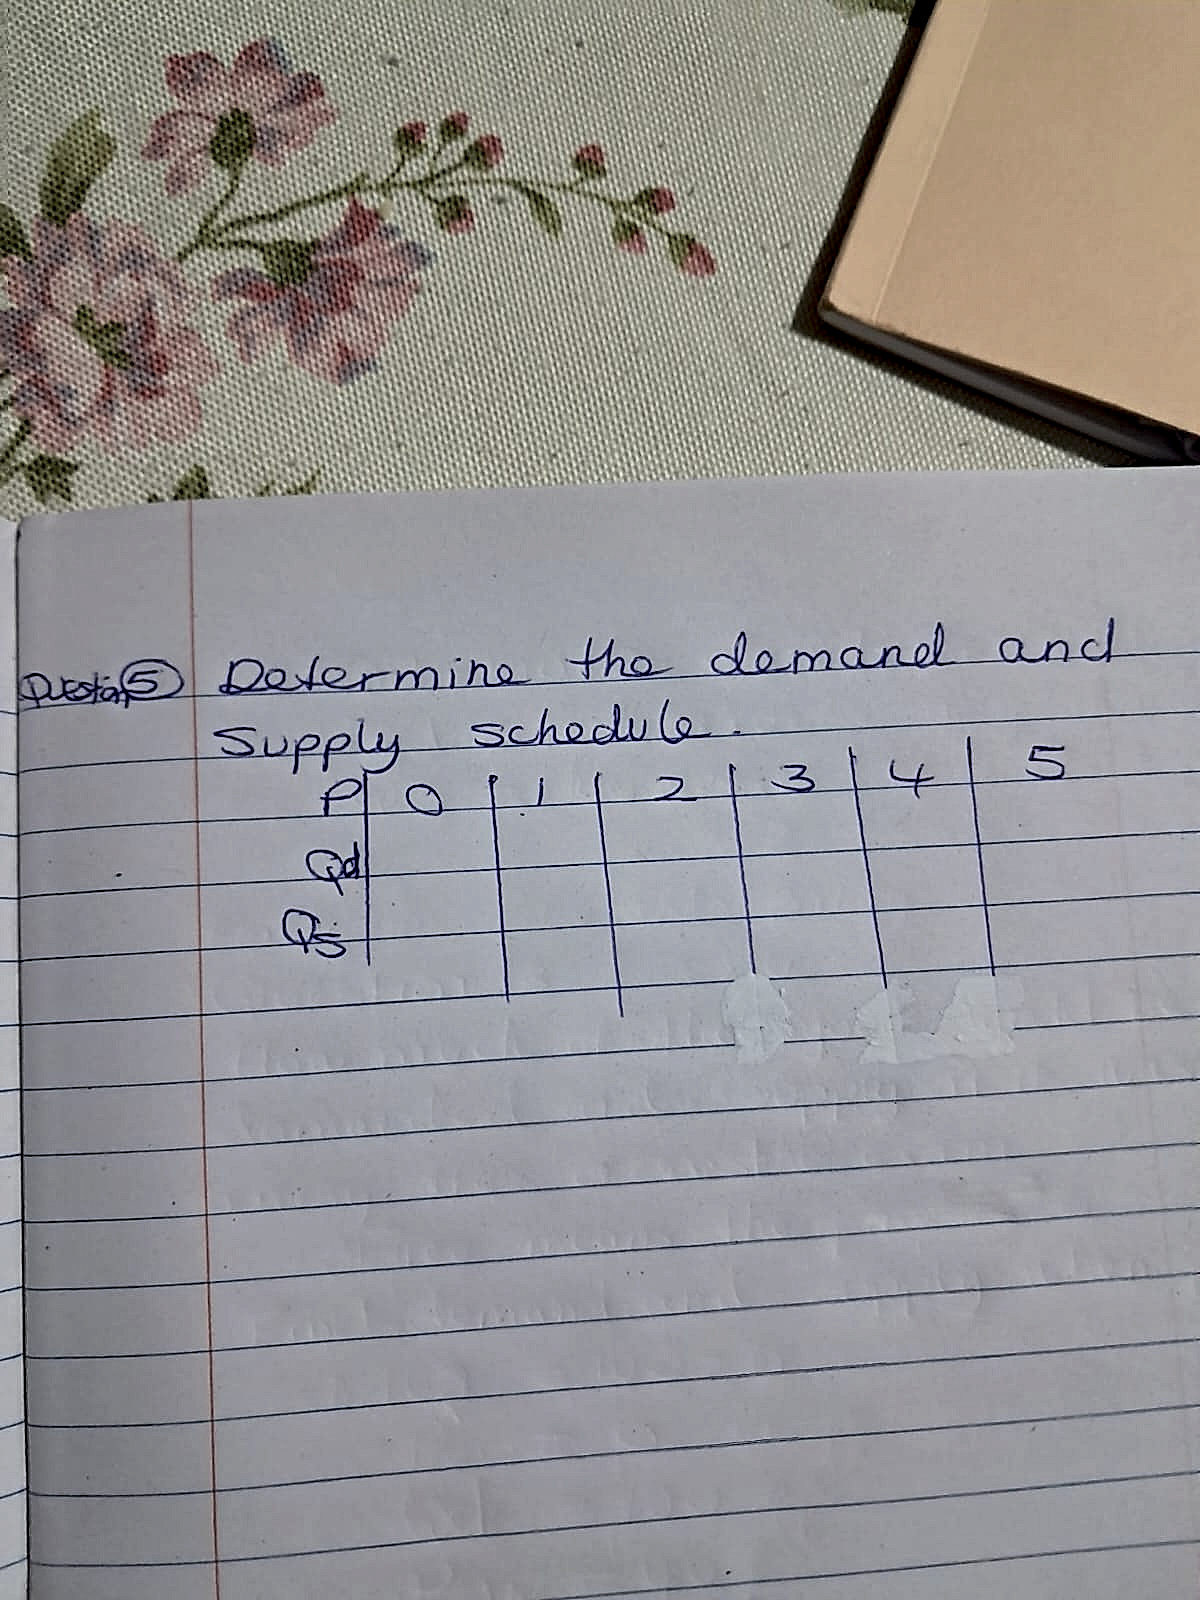 Question 5 Determine the demand and
Supply schedule.
P 0 1 2 3 4 5
Qd
Qs